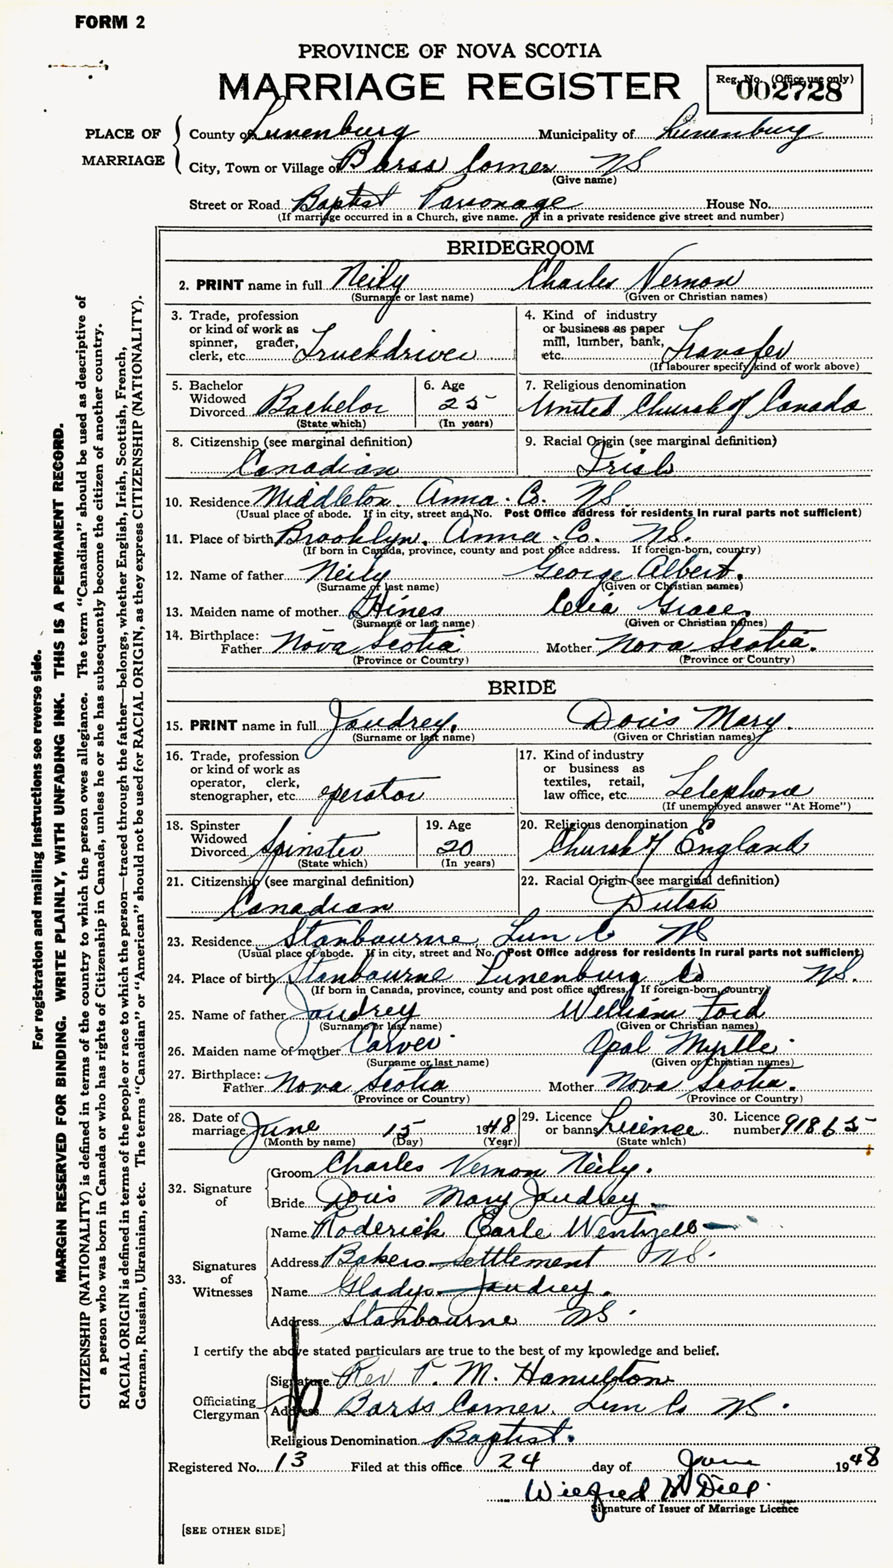 FORM 2
PROVINCE OF NOVA SCOTIA
MARRIAGE REGISTER
Reg. No. (Office use only)
002728
PLACE OF MARRIAGE
County of Lunenburg Municipality of Lunenburg
City, Town or Village of Barss Corner NS
(Give name)
Street or Road Baptist Parsonage House No.
(If marriage occurred in a Church, give name. If in a private residence give street and number)
BRIDEGROOM
2. PRINT name in full Neily Charles Vernon
(Surname or last name) (Given or Christian names)
3. Trade, profession or kind of work as spinner, grader, clerk, etc. Truckdriver
4. Kind of industry or business as paper mill, lumber, bank, etc. Transfer
(If labourer specify kind of work above)
5. Bachelor Widowed Divorced Bachelor
(State which)
6. Age 25
(In years)
7. Religious denomination
United Church of Canada
8. Citizenship (see marginal definition)
Canadian
9. Racial Origin (see marginal definition)
Irish
10. Residence Middleton. Anna. Co. NS.
(Usual place of abode. If in city, street and No. Post Office address for residents in rural parts not sufficient)
11. Place of birth Brooklyn. Anna. Co. NS.
(If born in Canada, province, county and post office address. If foreign-born, country)
12. Name of father Neily George Albert.
(Surname or last name) (Given or Christian names)
13. Maiden name of mother Hines Celia Grace.
(Surname or last name) (Given or Christian names)
14. Birthplace: Father Nova Scotia Mother Nova Scotia.
(Province or Country) (Province or Country)
BRIDE
15. PRINT name in full Joudrey, Doris Mary.
(Surname or last name) (Given or Christian names)
16. Trade, profession or kind of work as operator, clerk, stenographer, etc. operator
17. Kind of industry or business as textiles, retail, law office, etc. Telephone
(If unemployed answer "At Home")
18. Spinster Widowed Divorced Spinster
(State which)
19. Age 20
(In years)
20. Religious denomination
Church of England
21. Citizenship (see marginal definition)
Canadian
22. Racial Origin (see marginal definition)
Dutch
23. Residence Stanbourne Lun Co NS
(Usual place of abode. If in city, street and No. Post Office address for residents in rural parts not sufficient)
24. Place of birth Stanbourne Lunenburg Co NS.
(If born in Canada, province, county and post office address. If foreign-born, country)
25. Name of father Joudrey William Ford
(Surname or last name) (Given or Christian names)
26. Maiden name of mother Carver Opal Myrtle
(Surname or last name) (Given or Christian names)
27. Birthplace: Father Nova Scotia Mother Nova Scotia.
(Province or Country) (Province or Country)
28. Date of marriage June 15 1948
(Month by name) (Day) (Year)
29. Licence or banns License
(State which)
30. Licence number 91865
32. Signature of
Groom Charles Vernon Neily.
Bride Doris Mary Joudrey.
33. Signatures of Witnesses
Name Roderick Earle Wentzell
Address Bakers Settlement NS.
Name Gladys Joudrey.
Address Stanbourne NS.
I certify the above stated particulars are true to the best of my knowledge and belief.
Officiating Clergyman
Signature Rev M. Hamilton
Address Barss Corner. Lun Co NS.
Religious Denomination Baptist.
Registered No. 13 Filed at this office 24 day of June 1948
Wilfred Dill.
Signature of Issuer of Marriage Licence
[SEE OTHER SIDE]
For registration and mailing instructions see reverse side.
MARGIN RESERVED FOR BINDING. WRITE PLAINLY, WITH UNFADING INK. THIS IS A PERMANENT RECORD.
CITIZENSHIP (NATIONALITY) is defined in terms of the country to which the person owes allegiance. The term "Canadian" should be used as descriptive of
a person who was born in Canada or who has rights of Citizenship in Canada, unless he or she has subsequently become the citizen of another country.
RACIAL ORIGIN is defined in terms of the people or race to which the person—traced through the father—belongs, whether English, Irish, Scottish, French,
German, Russian, Ukrainian, etc. The terms "Canadian" or "American" should not be used for RACIAL ORIGIN, as they express CITIZENSHIP (NATIONALITY).